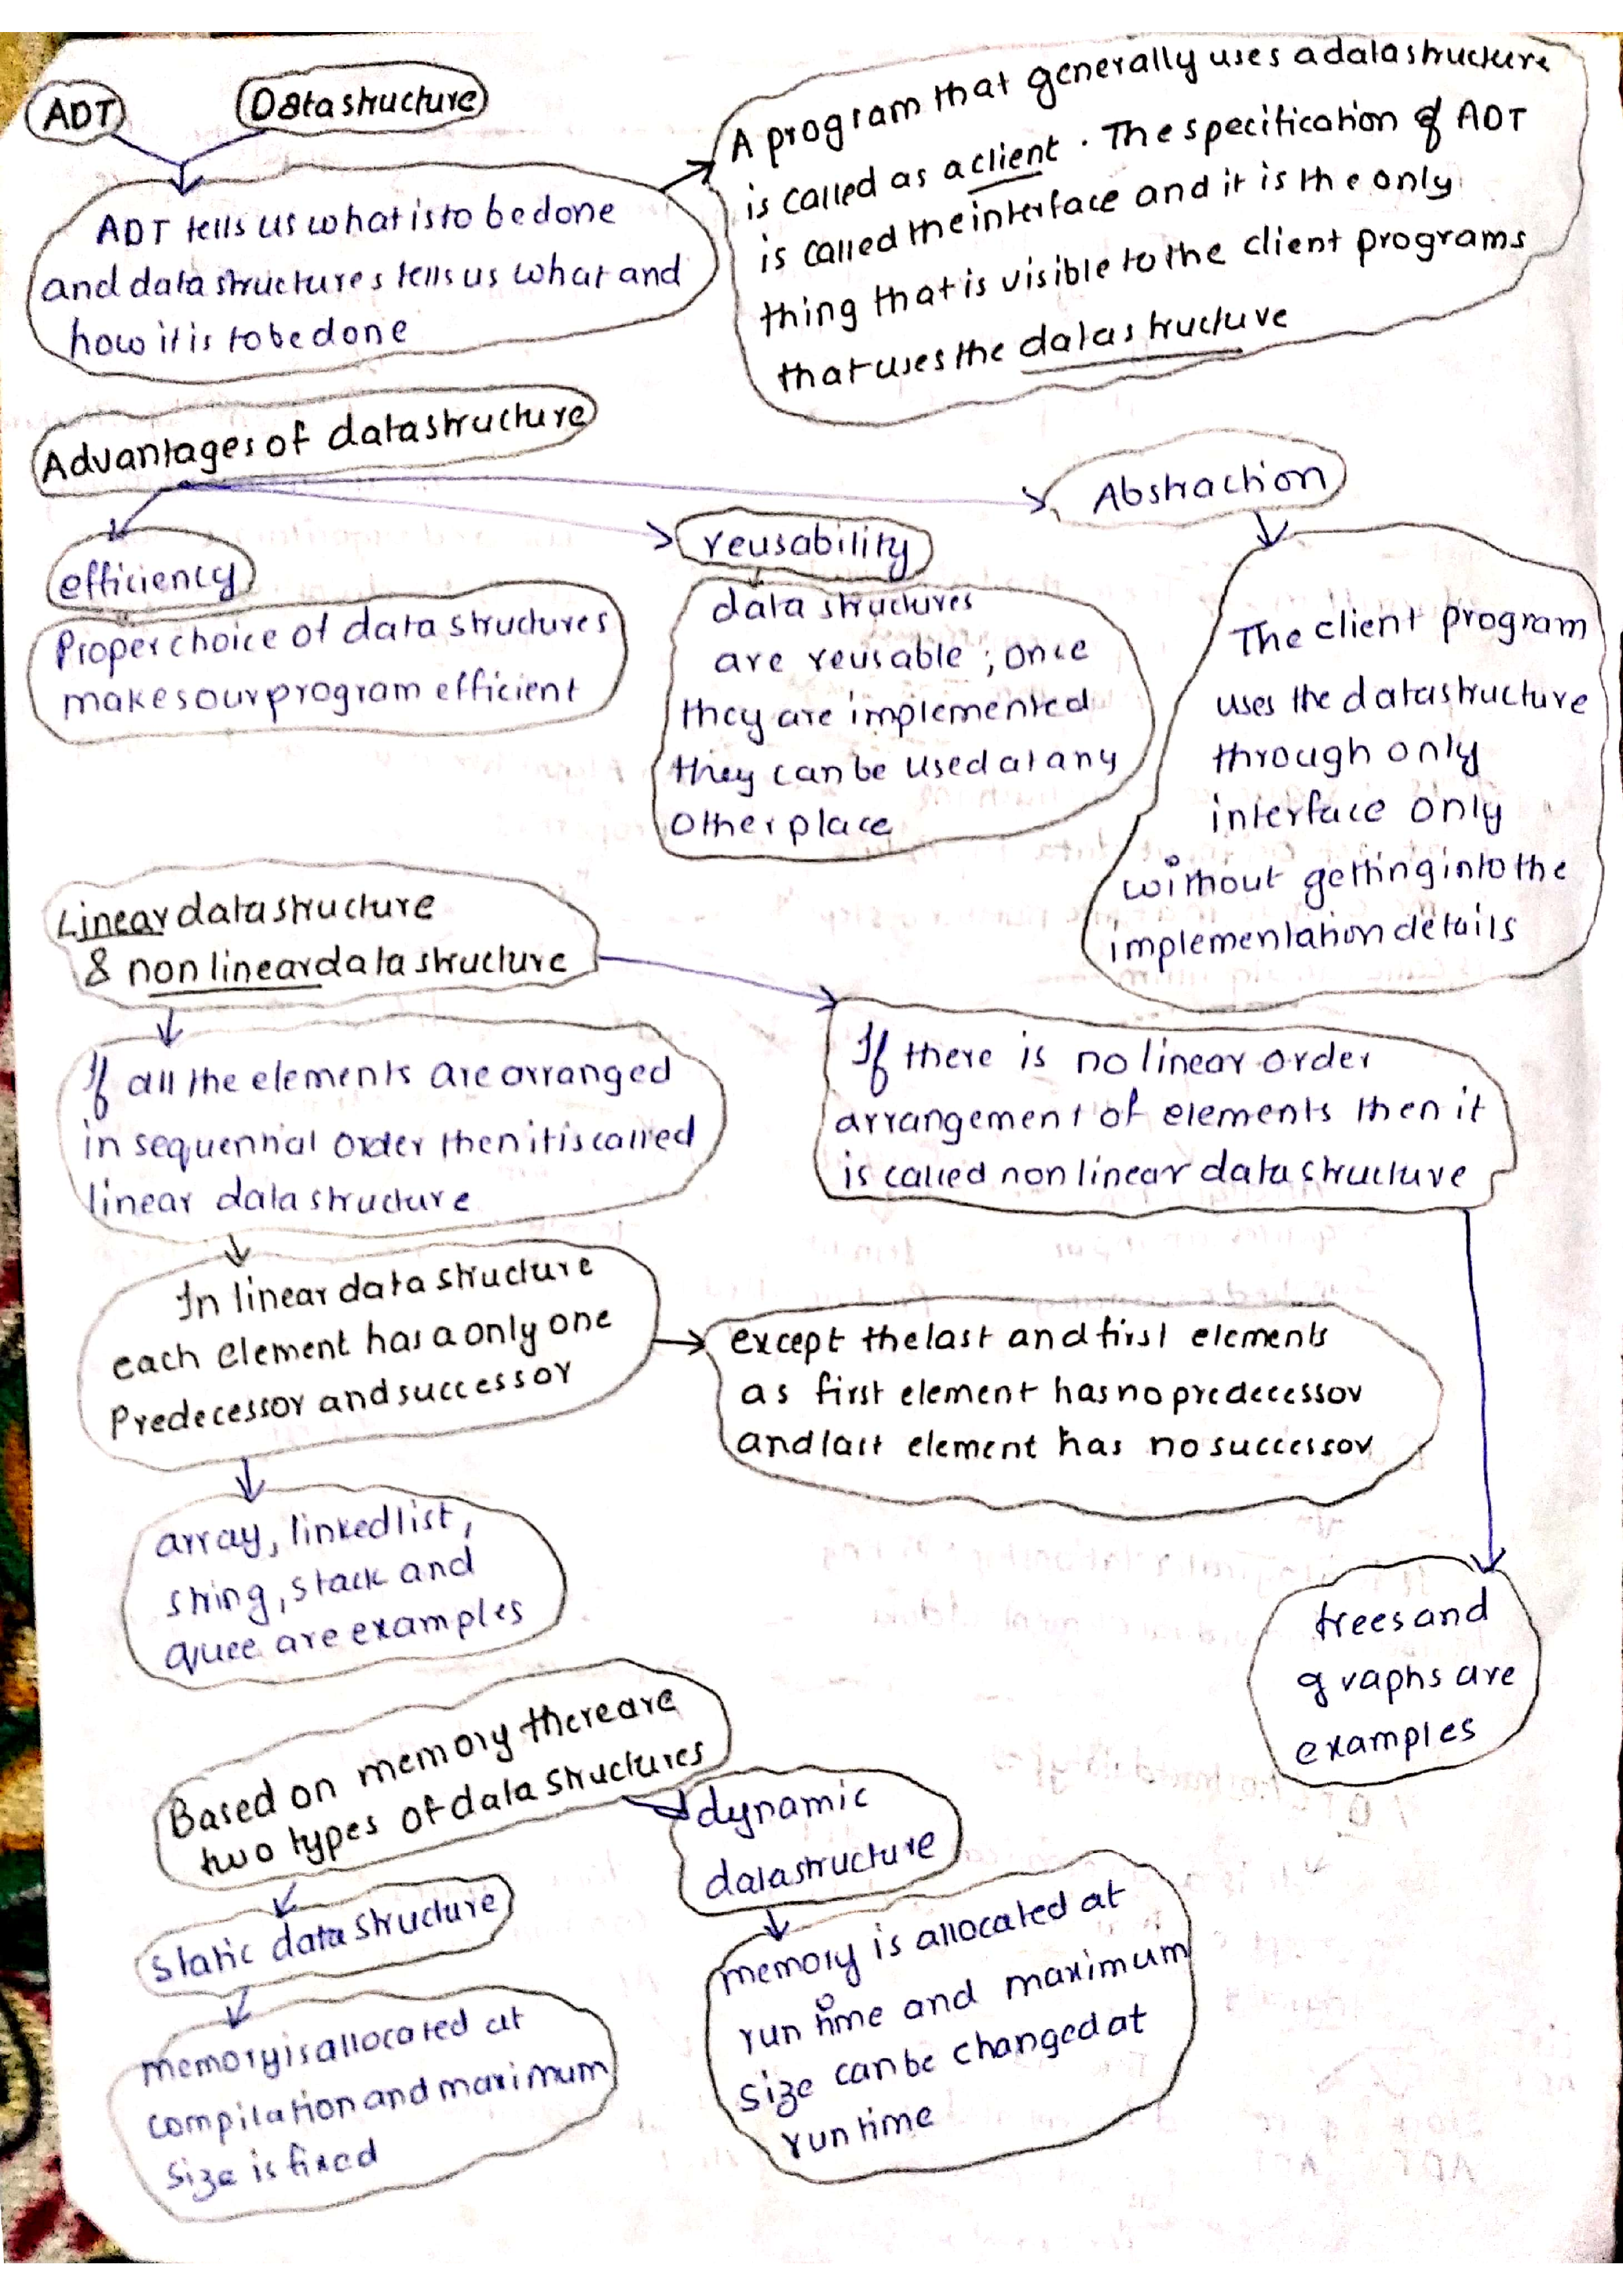 ADT
Data structure
ADT tells us what is to be done
and data structures tells us what and
how it is to be done
A program that generally uses a data structure
is called as a client. The specification of ADT
is called the interface and it is the only
thing that is visible to the client programs
that uses the data structure
Advantages of data structure
efficiency
Proper choice of data structures
makes our program efficient
reusability
data structures
are reusable ; once
they are implemented
they can be used at any
other place
Abstraction
The client program
uses the data structure
through only
interface only
without getting into the
implementation details
Linear data structure
& non linear data structure
If all the elements are arranged
in sequential order then it is called
linear data structure
If there is no linear order
arrangement of elements then it
is called non linear data structure
In linear data structure
each element has a only one
Predecessor and successor
except the last and first elements
as first element has no predecessor
and last element has no successor
array, linked list,
string, stack and
quee are examples
trees and
graphs are
examples
Based on memory there are
two types of data structures
static data structure
memory is allocated at
compilation and maximum
size is fixed
dynamic
data structure
memory is allocated at
run time and maximum
size can be changed at
run time